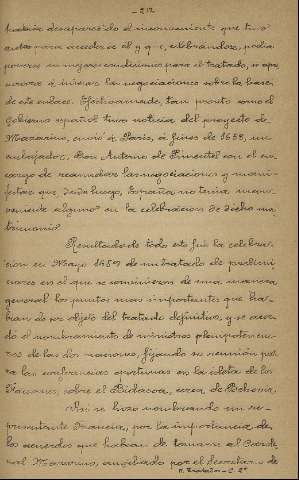 - 212 -
habían desaparecido el inconveniente que tuvo
antes para acceder a él y que, celebrándose, podía
ponerse en mejores condiciones para el tratado, se apre-
suraron á iniciar las negociaciones sobre la base
de este enlace. Efectivamente, tan pronto como el
Gobierno español tuvo noticia del proyecto de
Mazarino, envió á París, á fines de 1658, un
embajador, Don Antonio de Pimentel con el en-
cargo de reanudar las negociaciones y mani-
festar que, desde luego, España no tenía incon-
veniente alguno en la celebración de dicho ma-
trimonio.
Resultado de todo esto fué la celebra-
ción en Mayo 1659 de un tratado de prelimi-
nares en el que se convinieron de una manera
general los puntos mas importantes que ha-
bían de ser objeto del tratado definitivo, y se acor-
dó el nombramiento de ministros plenipotencia-
rios de las dos naciones, fijando su reunión pa-
ra las conferencias oportunas en la isleta de los
Faisanes, sobre el Bidasoa, cerca de Behovia.
Así se hizo nombrando un re-
presentante Francia, por la importancia de
los acuerdos que habían de tomarse al Carde-
nal Mazarino, auxiliado por el Secretario de
C. 2ª